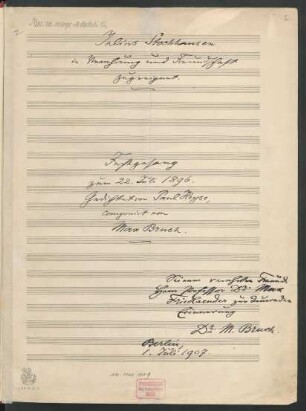 Julius Stockhausen
in Verehrung und Freundschaft
zugeeignet.
Festgesang
zum 22. Juli 1896.
Gedichtet von Paul Heyse,
componirt von
Max Bruch.
Seinem verehrten Freund
Herrn Professor Dr. Max
Friedlaender zur dauernden
Erinnerung
Dr. M. Bruch.
Berlin,
1. Juli 1907